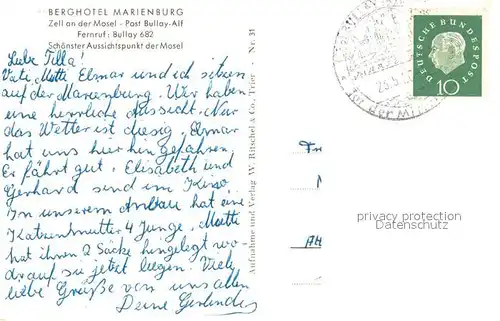 BERGHOTEL MARIENBURG
Zell an der Mosel - Post Bullay-Alf
Fernruf: Bullay 682
Schönster Aussichtspunkt der Mosel
Liebe Tilla!
Vati, Mutti, Elmar und ich sitzen
auf der Marienburg. Wir haben
eine herrliche Aussicht. Nur
das Wetter ist diesig. Elmar
hat uns hier hingefahren.
Er fährt gut. Elisabeth und
Gerhard sind im Kino.
In unserem Anbau hat eine
Katzenmutter 4 Junge. Mutti
hat ihnen 2 Säcke hingelegt wo-
drauf sie jetzt liegen. Viele
liebe Grüße von uns allen
Deine Gerlinde
Aufnahme und Verlag W. Ritschel & Co., Trier - Nr. 31
DEUTSCHE BUNDESPOST
10
privacy protection
Datenschutz